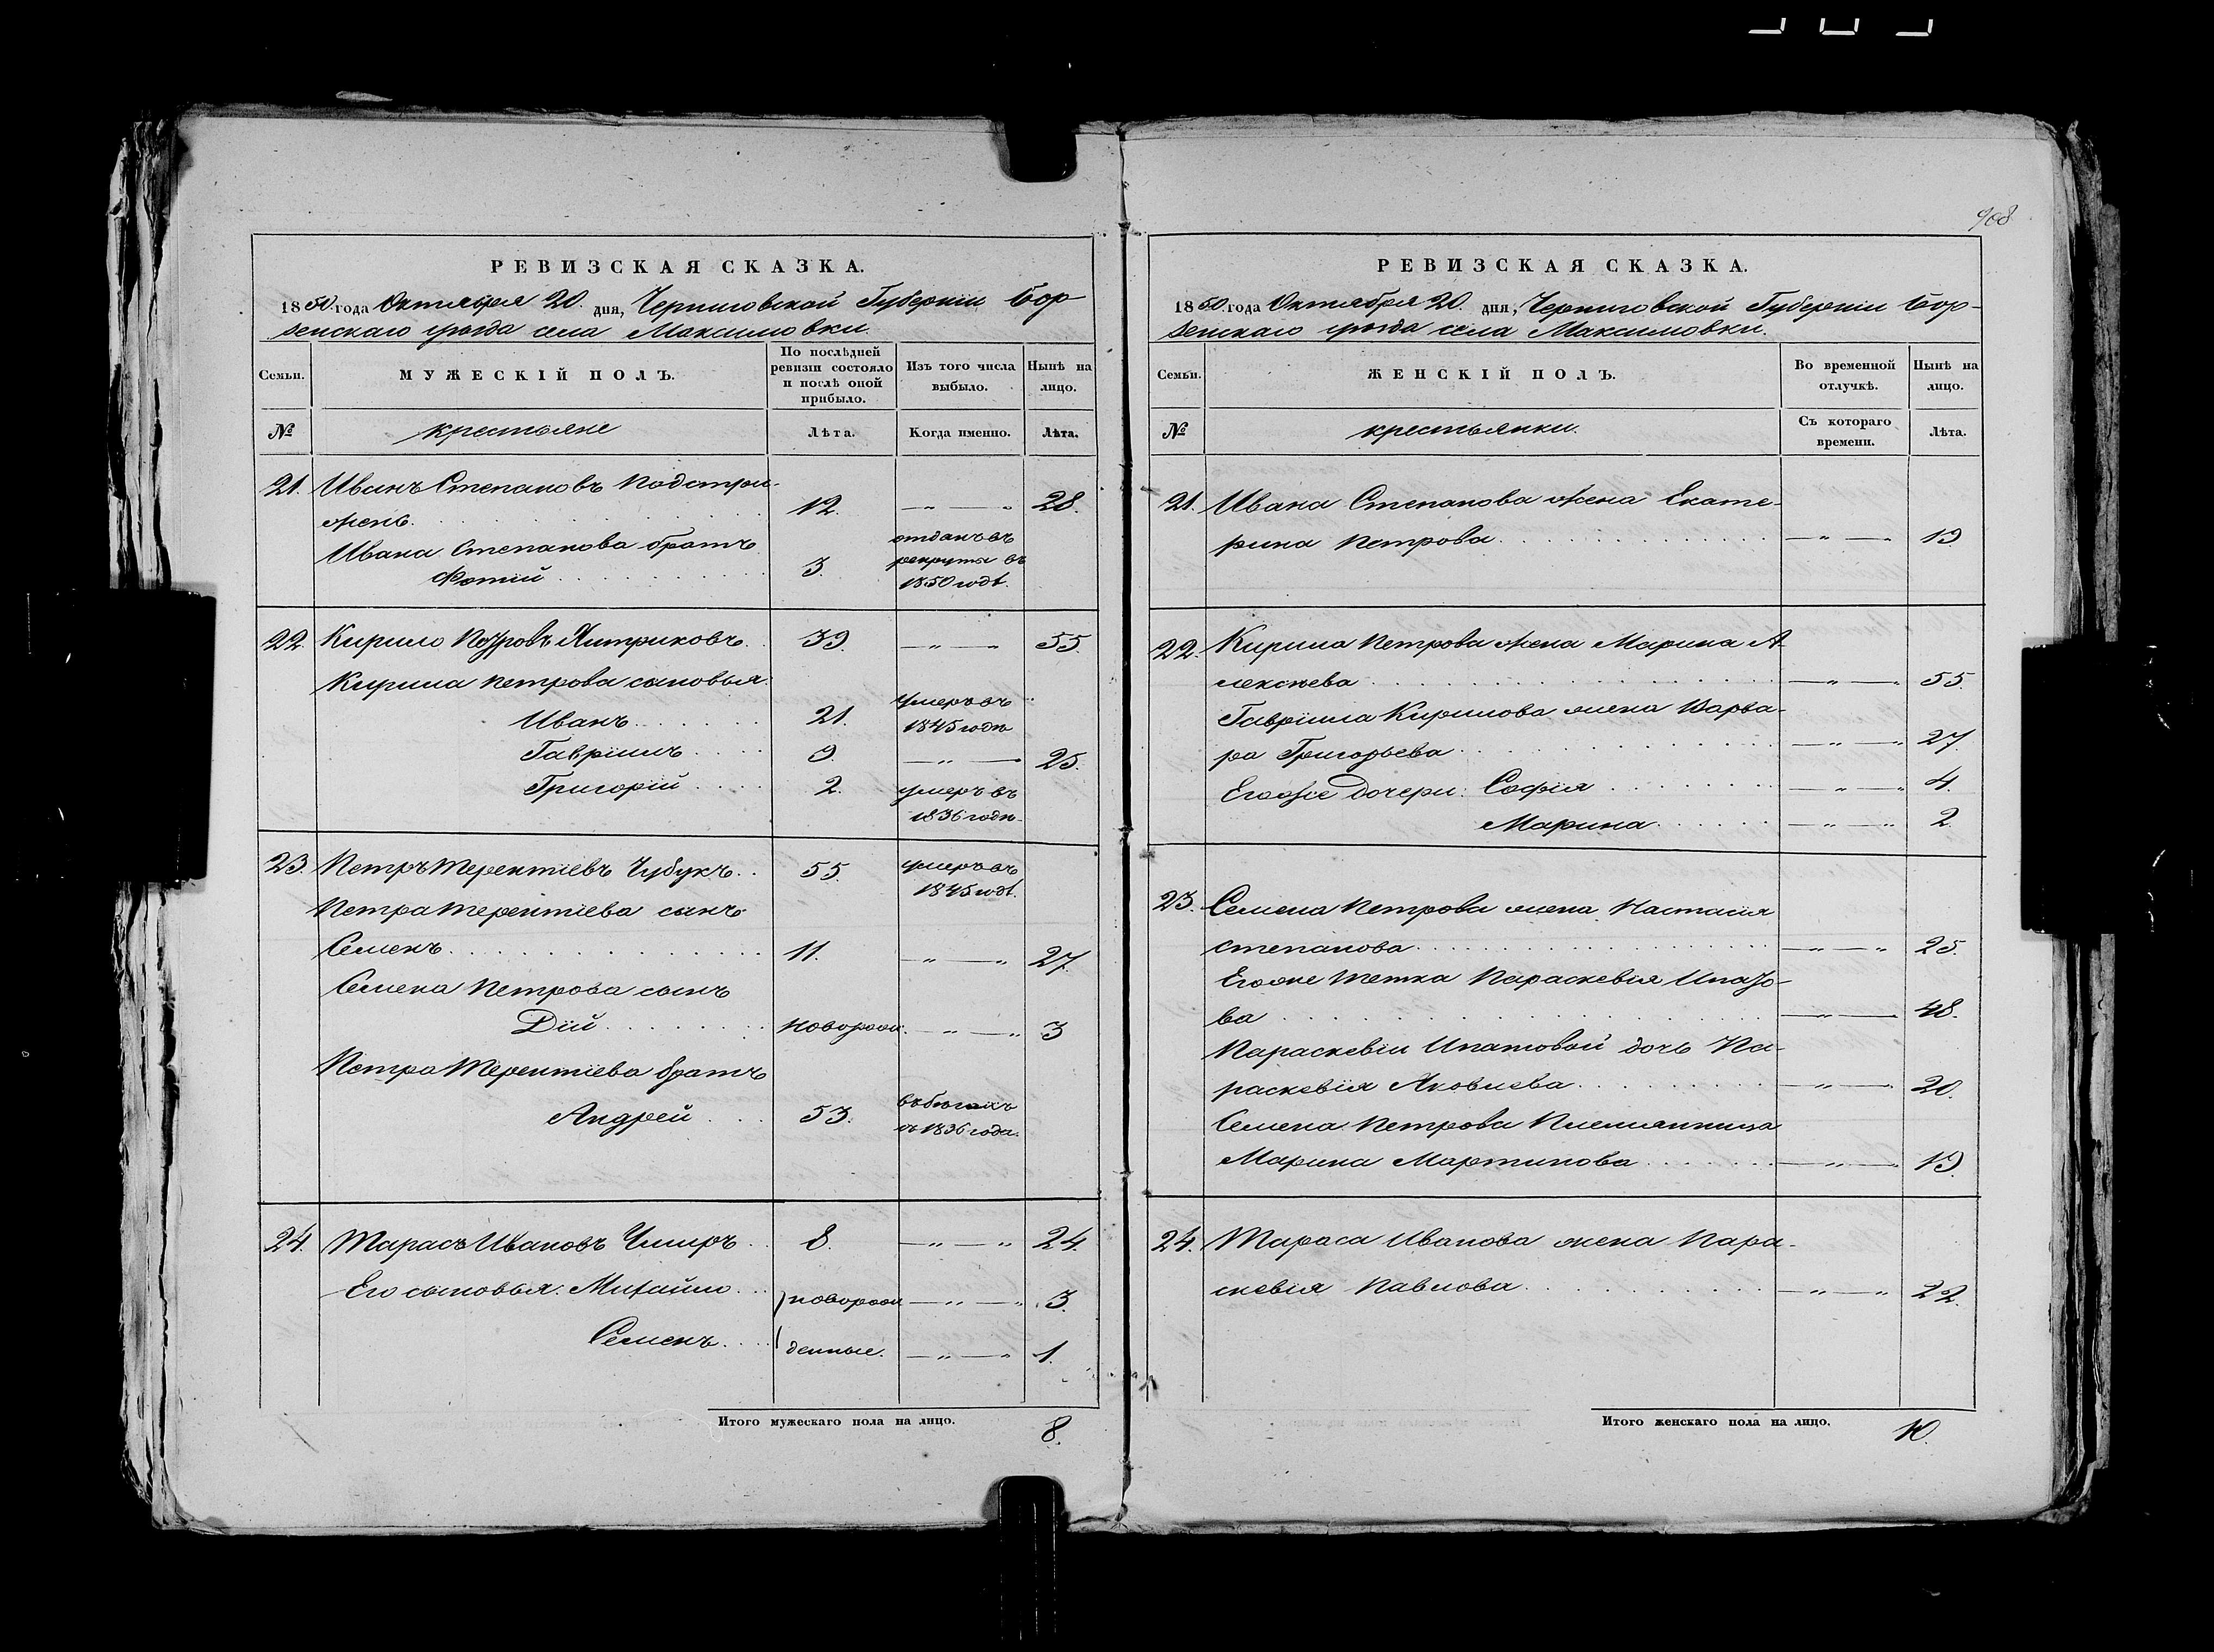 908
РЕВИЗСКАЯ СКАЗКА.
1850 года Октября 20 дня, Черниговской Губерніи Бор-
зенскаго уезда села Максимовки.
Семьи. МУЖЕСКІЙ ПОЛЪ. По послѣдней ревизіи состояло и послѣ оной прибыло. Изъ того числа выбыло. Нынѣ на лицо.
№ крестьяне Лѣта. Когда именно. Лѣта.
21. Иванъ Степановъ Подстри-
жень. 12. — " — " 28.
Ивана Степанова братъ
Фотій 3. отданъ въ рекруты въ 1850 годѣ.
22. Кирило Петровъ Хитриковъ. 39. — " — 55.
Кирила Петрова сыновья:
Иванъ 21. умеръ въ 1845 годѣ
Гавріилъ 9. — " — 25.
Григорій 2. умеръ въ 1836 годѣ
23. Петръ Терентіевъ Чубукъ. 55. умеръ въ 1845 годѣ.
Петра Терентіева сынъ
Семенъ 11. — " — " 27.
Семена Петрова сынъ
Дій новорож. — " — " 3
Петра Терентіева братъ
Андрей 53. въ бегахъ съ 1836 года.
24. Тарасъ Ивановъ Чмиръ 8. — " — " 24.
Его сыновья: Михайло новорож — " — " 3.
Семенъ денные. — " — " 1.
Итого мужескаго пола на лицо. 8.
РЕВИЗСКАЯ СКАЗКА.
1850 года Октября 20 дня, Черниговской Губерніи Бор-
зенскаго уезда села Максимовки.
Семьи. ЖЕНСКІЙ ПОЛЪ. Во временной отлучкѣ. Нынѣ на лицо.
№ крестьянки. Съ котораго времени. Лѣта.
21. Ивана Степанова жена Екате-
рина Петрова — " — " 19
22. Кирила Петрова жена Марина А-
лексѣева — " — " 55.
Гавріила Кирилова жена Варва-
ра Григорьева — " — " 27
Егоже дочери: Софія — " — " 4.
Марина — " — " 2.
23. Семена Петрова жена Настасія
Степанова — " — " 25.
Егоже тетка Параскевія Ипато-
ва — " — 48.
Параскевіи Ипатовой дочь Па-
раскевія Яковлева — " — 20.
Семена Петрова Племянница
Марина Мартинова — " — 19.
24. Тараса Иванова жена Пара-
скевія Павлова — " — " 22.
Итого женскаго пола на лицо. 10.